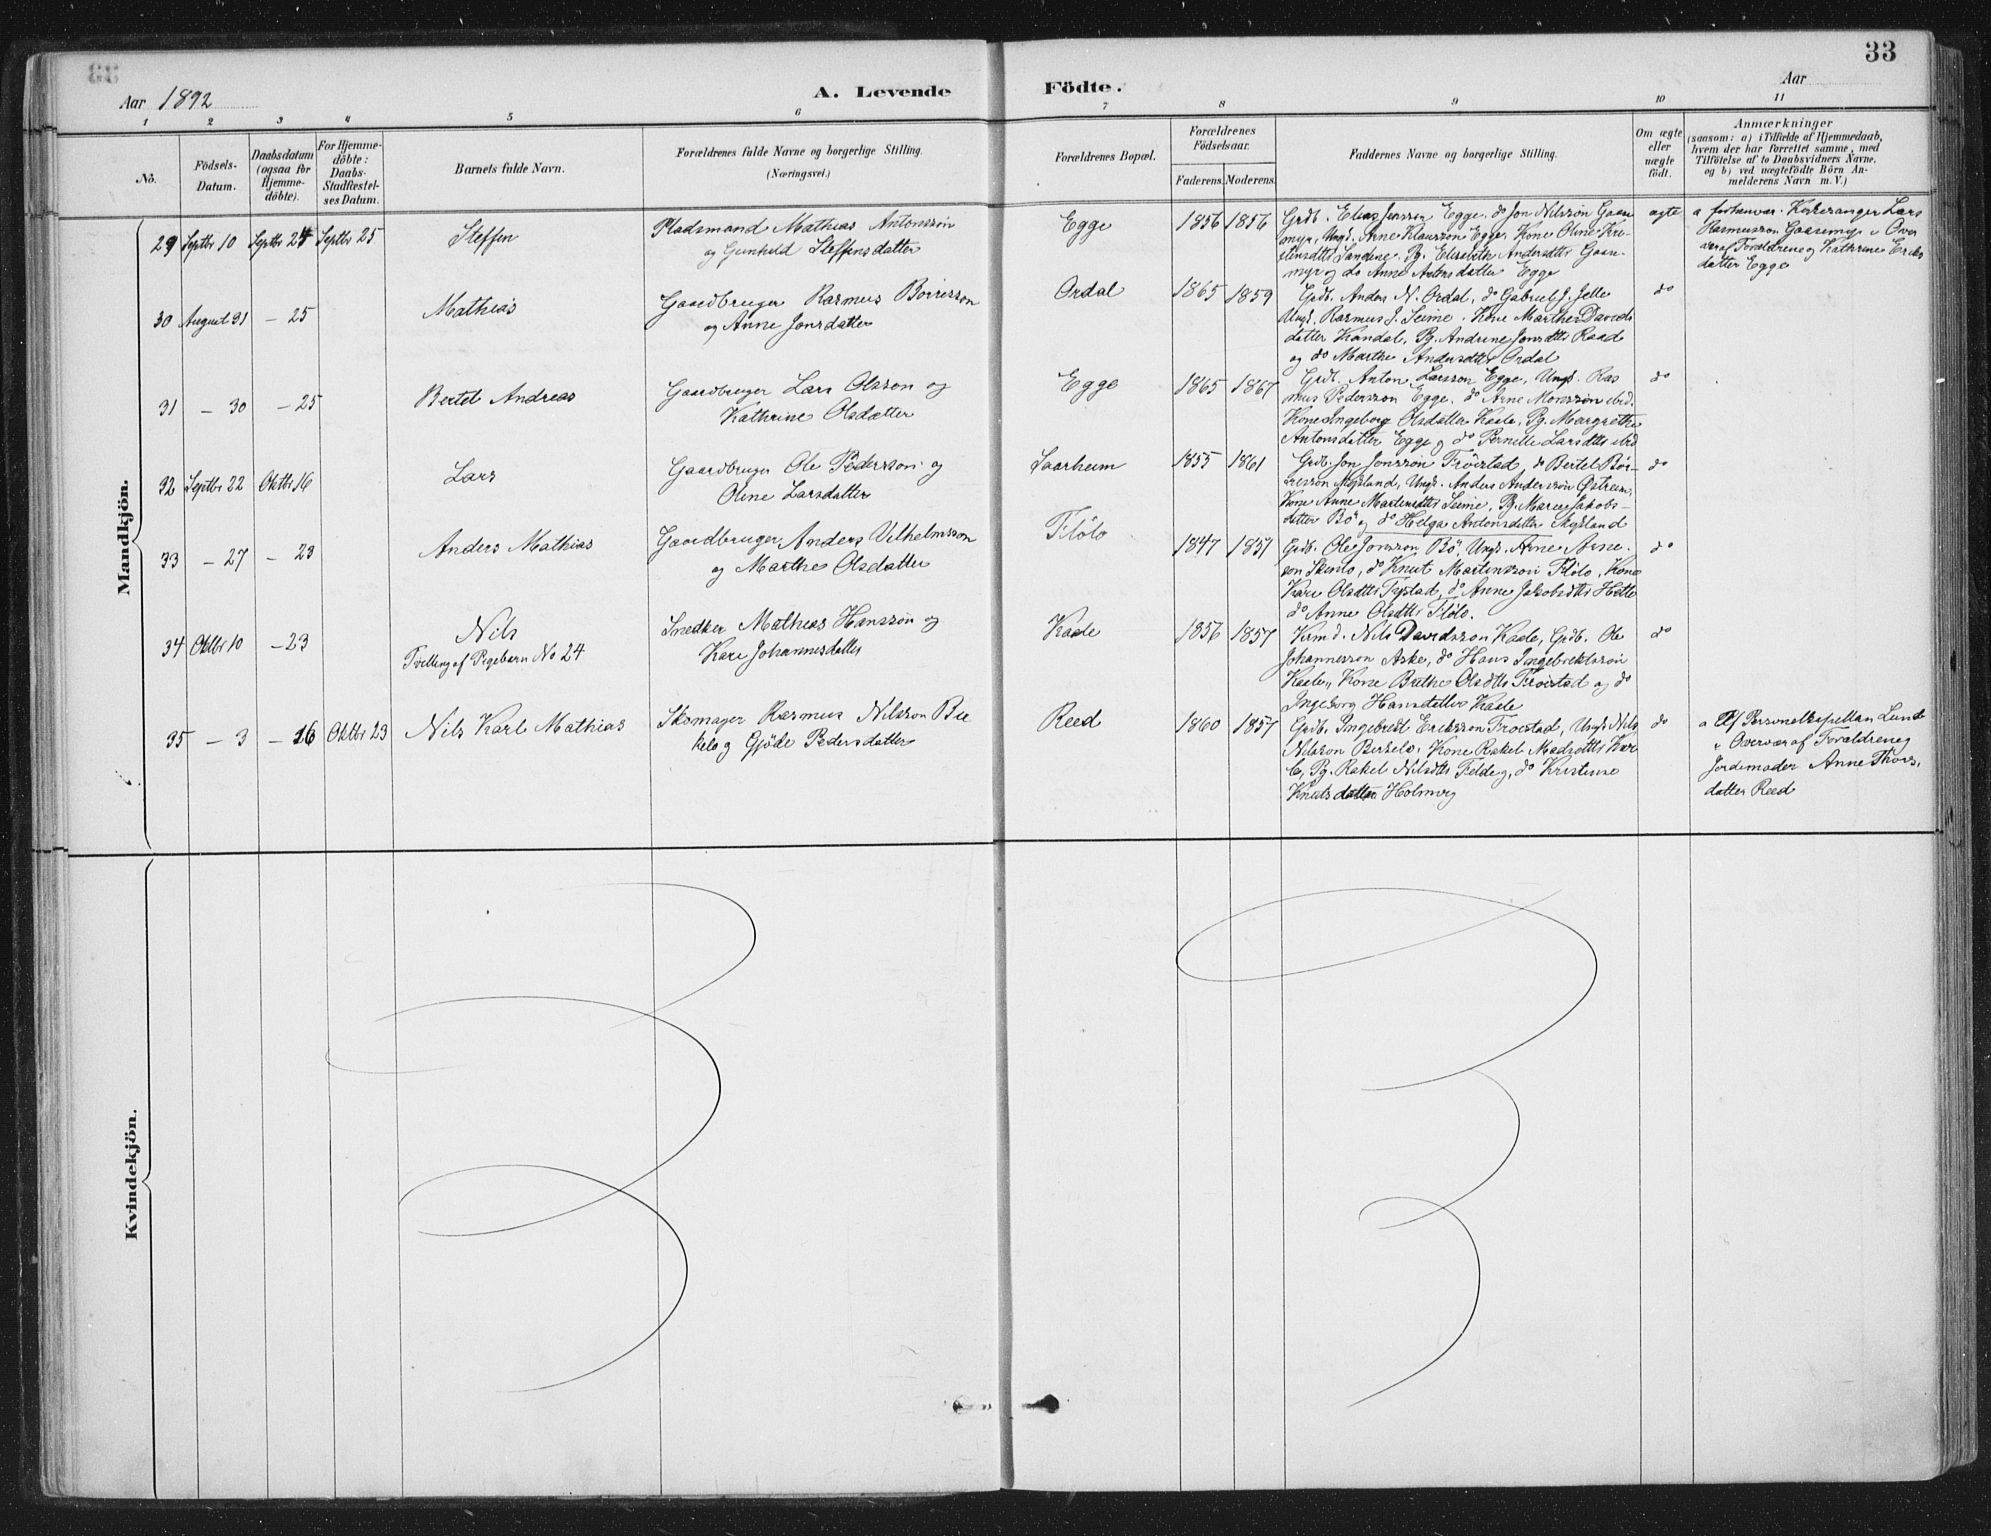 33
Aar 1892
A. Levende Födte.
Aar
1 2 3 4 5 6 7 8 9 10 11
No.
Födsels-Datum.
Daabsdatum (ogsaa for Hjemme-döbte).
For Hjemme-döbte: Daabs-Stadfæstel-ses Datum.
Barnets fulde Navn.
Forældrenes fulde Navne og borgerlige Stilling.
(Næringsvei.)
Forældrenes Bopæl.
Forældrenes Födselsaar.
Faderens. Moderens.
Faddernes Navne og borgerlige Stilling.
Om ægte eller uægte födt.
Anmærkninger
(saasom: a) i Tilfælde af Hjemmedaab,
hvem der har forrettet samme, med
Tilföielse af to Daabsvidners Navne,
og b) ved uægtefödte Börn An-
melderens Navn m. V.)
Mandkjön.
29 Septbr 10 Septbr 24 Septbr 25 Steffen
Pladsmand Mathias Antonssøn
og Gunhild Steffensdatter
Egge 1856 1856
Grdb. Elias Jensson Egge, do Jon Nilssøn Gaase-
myr, Ungk. Arne Klausson Egge, Kone Oline Kri-
stensdttr Sandene, Pg. Elisabeth Andersdttr Gaase-
myr og do Anne Antonsdatter Egge
ægte
a forhenvær. Kirkesanger Lars
Rasmusson Gaasemyr i Over
vær af Forældrene og Kathrine Eriks
datter Egge
30 August 31 — 25 Mathias
Gaardbruger Rasmus Børresson
og Anne Jonsdatter
Ordal 1865 1859
Grdb. Anders N. Ordal, do Gabriel J. Jelle
Ungk. Rasmus J. Seime, Kone Marthe Davids
datter Kandal, Pg. Andrine Jonsdttr Raad
og do Marthe Andersdttr Ordal
do
31 — 30 — 25 Bertel Andreas
Gaardbruger Lars Olsson og
Kathrine Olsdatter
Egge 1865 1867
Grdb. Anton Larsson Egge, Ungk. Ras
mus Pedersson Egge, do Arne Monssøn ibid.
Kone Ingeborg Olsdatter Kaale, Pg. Margrethe
Antonsdatter Egge og do Pernille Larsdttr ibid
do
32 Septbr 22 Oktbr 16 Lars
Gaardbruger Ole Pedersson og
Oline Larsdatter
Saarheim 1855 1861
Grdb. Jon Jonssøn Frøistad, do Bertel Bør-
resson Myrland, Ungk. Anders Anderssøn Østrem,
Kone Anne Martinsdttr Seime, Pg. Maren Jakobs-
datter Bø og do Helga Antonsdatter Myrland
do
33 — 27 — 23 Anders Mathias
Gaardbruger Anders Vilhelmsson
og Marthe Olsdatter
Fløло 1847 1851
Grdb. Ole Jonsson Bø, Ungk. Arne Arne-
son, do Knut Martinsson Fløло, Kone
Kari Olsdttr, do Anne Jakobsdttr Hetle
do Anne Olsdttr Fløло.
do
34 Oktbr 10 — 23 Nils
Tvilling af Pigebarn No 24
Snedker Mathias Hanssøn og
Kari Johannesdatter
Kaale 1856 1857
Nils Davidsson Kaale, Grdb. Ole
Johannesson Aske, do Hans Ingebrektssøn
Kaale, Kone Brithe Olsdttr Frøistad og do
Ingeborg Hansdatter Kaale
do
35 — 3 — 16 Oktbr 23 Nils Karl Mathias
Skomager Rasmus Nilsson Bir
kelo og Gjøde Pedersdatter
Reed 1860 1857
Grdb. Ingebret Eriksson Frøistad, Ungk. Nils
Nilsson Birkelo, Kone Rakel Madsdttr Kir
, Pg. Rakel Nilsdttr Felde og do Kristine
Knuts datter Holmøy
do
a Af Personelkapellan Lund
i Overvær af Forældrene og
Jordemoder Anne Thors-
datter Reed
Kvindekjön.